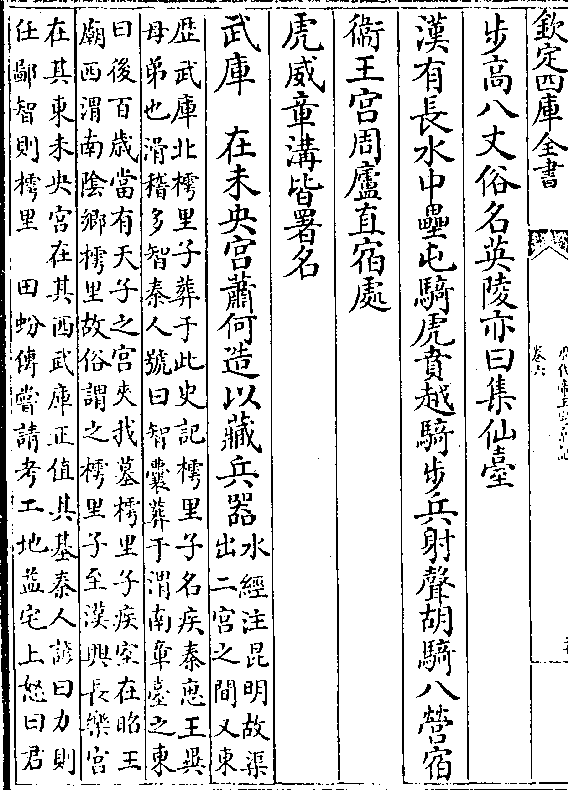 欽定四庫全書
卷六
步高八丈俗名英陵亦曰集仙臺
漢有長水中壘屯騎虎賁越騎步兵射聲胡騎八營宿
衛王宫周廬直宿處
虎威章溝皆署名
武庫　在未央宫蕭何造以藏兵器水經注昆明故渠
出二宫之間又東
歴武庫北樗里子葬于此史記樗里子名疾秦恵王異
母弟也滑稽多智秦人號曰智囊葬于渭南章臺之東
曰後百歳當有天子之宫夾我墓樗里子疾室在昭王
廟西渭南隂鄉樗里故俗謂之樗里子至漢興長樂宫
在其東未央宫在其西武庫正值其基秦人諺曰力則
任鄙智則樗里　田蚡傳嘗請考工地益宅上怒曰君